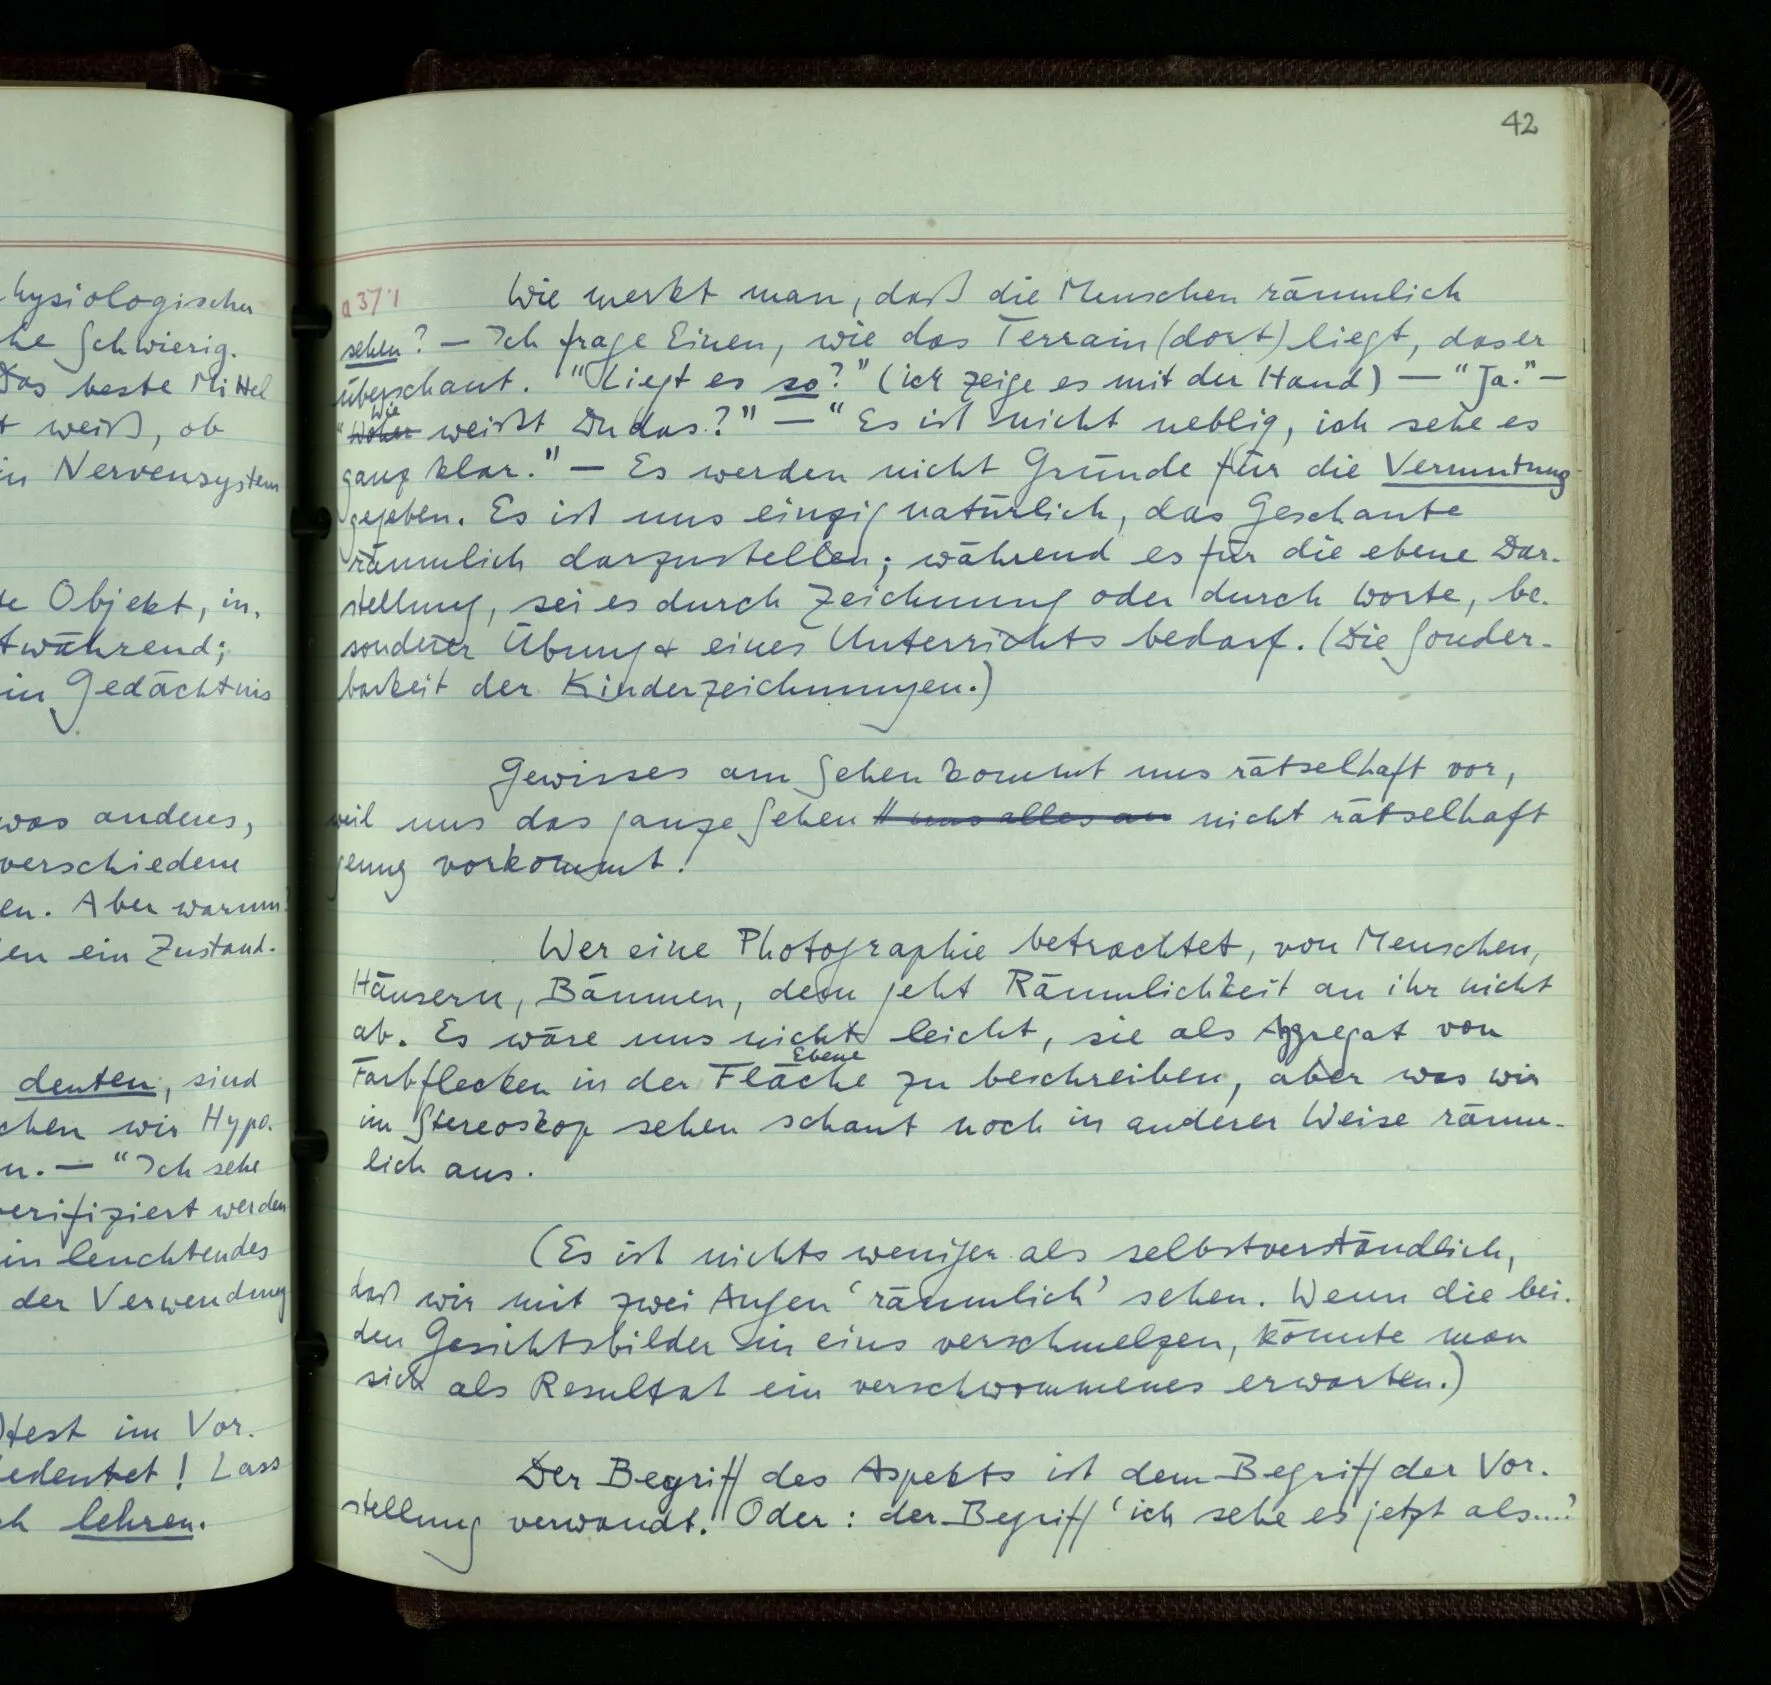 hysiologischen
he Schwierig.
Das beste Mittel
t weiß, ob
in Nervensystem
te Objekt, in.
twährend;
in Gedächtnis
was anderes,
verschiedene
en. Aber warum
en ein Zustand.
deuten, sind
chen wir Hypo.
n. — "Ich sehe
verifiziert werden
in leuchtendes
der Verwendung
test im Vor.
edeutet! Lass
ch lehren.
42
Wie merkt man, daß die Menschen räumlich
sehen? — Ich frage Einen, wie das Terrain (dort) liegt, das er
überschaut. "Liegt es so?" (ich zeige es mit der Hand) — "Ja." —
Wie
"Woher weißt Du das?" — "Es ist nicht neblig, ich sehe es
ganz klar." — Es werden nicht Gründe für die Vermutung
gegeben. Es ist uns einzig natürlich, das Geschaute
räumlich darzustellen; während es für die ebene Dar-
stellung, sei es durch Zeichnung oder durch Worte, be-
sonderer Übung & eines Unterrichts bedarf. (Die Sonder-
barkeit der Kinderzeichnungen.)
Gewisses am Sehen kommt uns rätselhaft vor,
weil uns das ganze Sehen nicht rätselhaft
genug vorkommt.
Wer eine Photographie betrachtet, von Menschen,
Häusern, Bäumen, dem geht Räumlichkeit an ihr nicht
ab. Es wäre uns nicht leicht, sie als Aggregat von
Ebene
Farbflecken in der Fläche zu beschreiben, aber was wir
im Stereoskop sehen schaut noch in anderer Weise räum-
lich aus.
(Es ist nichts weniger als selbstverständlich,
daß wir mit zwei Augen 'räumlich' sehen. Wenn die bei-
den Gesichtsbilder in eins verschmelzen, könnte man
sich als Resultat ein verschwommenes erwarten.)
Der Begriff des Aspekts ist dem Begriff der Vor-
stellung verwandt. Oder: der Begriff 'ich sehe es jetzt als....'